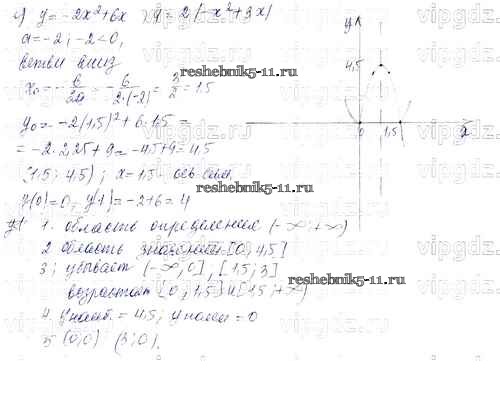 c) y = -2x²+6x y = 2(-x²+3x)
a = -2; -2<0,
ветви вниз
x₀ = -6/2a = -6/2·(-2) = 3/2 = 1,5
y₀ = -2(1,5)²+6·1,5 =
= -2·2,25+9 = -4,5+9 = 4,5
(1,5; 4,5); x = 1,5 - ось сим.
y(0)=0, y(1)=-2+6=4
1. область определения (-∞; +∞)
2 область значений [0, 4,5]
3; убывает (-∞; 0], [1,5; 3]
возрастает [0, 1,5] и [1,5; +∞)
4. y наиб. = 4,5; y наим = 0
5 (0;0) (3;0).
y
4,5
0 1,5 x
reshebnik5-11.ru
reshebnik5-11.ru
reshebnik5-11.ru
reshebnik5-11.ru
vipgdz.ru